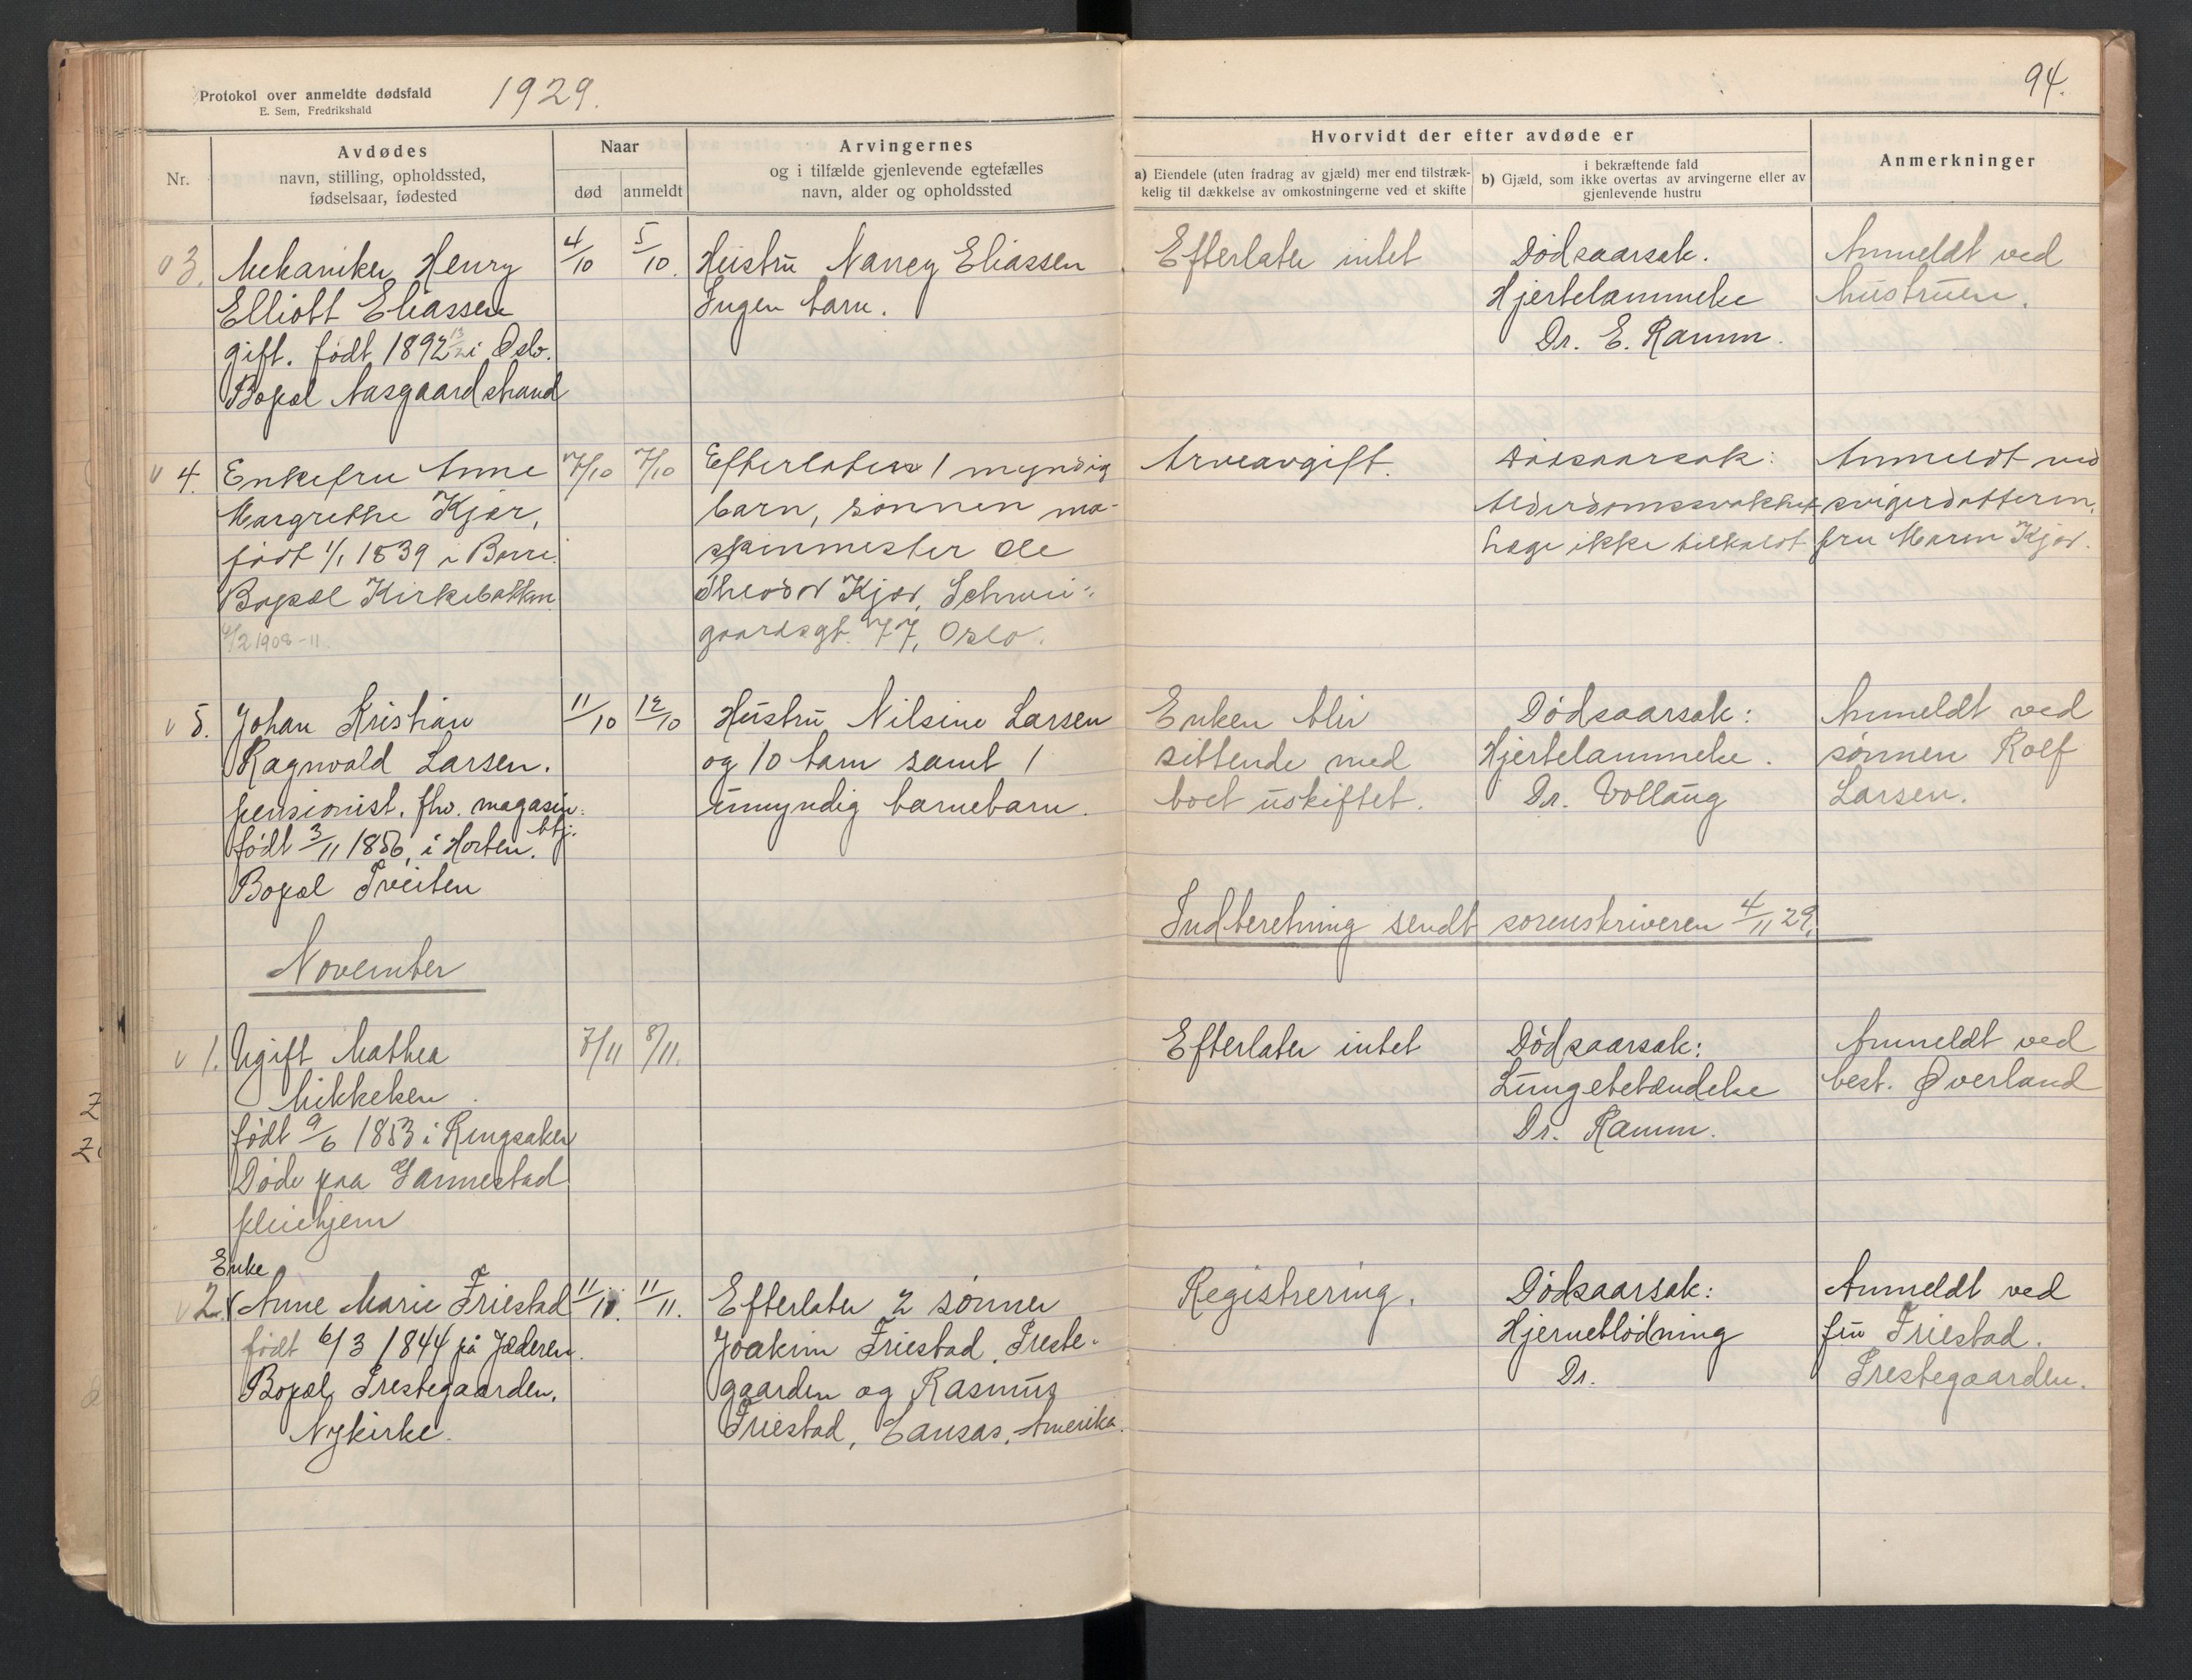 Protokol over anmeldte dødsfald
E. Sem, Fredrikshald
1929.
94.
Nr.
Avdødes
navn, stilling, opholdssted,
fødselsaar, fødested
Naar
død
anmeldt
Arvingernes
og i tilfælde gjenlevende egtefælles
navn, alder og opholdssted
Hvorvidt der efter avdøde er
a) Eiendele (uten fradrag av gjæld) mer end tilstræk-
kelig til dækkelse av omkostningerne ved et skifte
i bekræftende fald
b) Gjæld, som ikke overtas av arvingerne eller av
gjenlevende hustru
Anmerkninger
v 3.
Mekaniker Henry
Elliott Eliassen
gift. født 1892 13/2 i Oslo.
Bopæl Aasgaardstrand
4/10
5/10.
Hustru Nancy Eliassen
Ingen barn.
Efterlater intet
Dødsaarsak.
Hjertelammelse
Dr. E. Ramm.
Anmeldt ved
hustruen.
v 4.
Enkefru Anne
Margrethe Kjær,
født 1/1 1839 i Borre.
Bopæl Kirkebakken
/2 1908-11.
7/10
7/10
Efterlater 1 myndig
barn, sønnen ma-
skinmester Ole
Theodor Kjær, Schwei-
gaardsgt. 77, Oslo.
Arveavgift.
Dødsaarsak:
Alderdomssvakhet
Læge ikke tilkaldt
Anmeldt ved
svigerdatteren,
fru Maren Kjær.
v 5.
Johan Kristian
Ragnvald Larsen.
pensionist, fhv. magasin-
btj.
født 3/11 1856, i Horten.
Bopæl Tveiten
11/10
12/10
Hustru Nilsine Larsen
og 10 barn samt 1
umyndig barnebarn.
Enken blir
sittende med
boet uskiftet.
Dødsaarsak:
Hjertelammelse.
Dr. Vollaug
Anmeldt ved
sønnen Rolf
Larsen.
Indberetning sendt sorenskriveren 4/11 29.
November
v 1.
Ugift Mathea
Mikkelsen.
født 9/6 1853 i Ringsaker
Døde paa Gannestad
pleiehjem
7/11
8/11.
Efterlater intet
Dødsaarsak:
Lungebetændelse
Dr. Ramm.
Anmeldt ved
best. Øverland
Enke
v 2.
Anne Marie Friestad
født 6/3 1844 på Jæderen.
Bopæl, Prestegaarden,
Nykirke.
11/11.
11/11.
Efterlater 2 sønner
Joakim Friestad, Preste-
gaarden og Rasmus
Friestad, Cansas, Amerika.
Registrering.
Dødsaarsak:
Hjerneblødning
Dr.
Anmeldt ved
fru Friestad.
Prestegaarden.